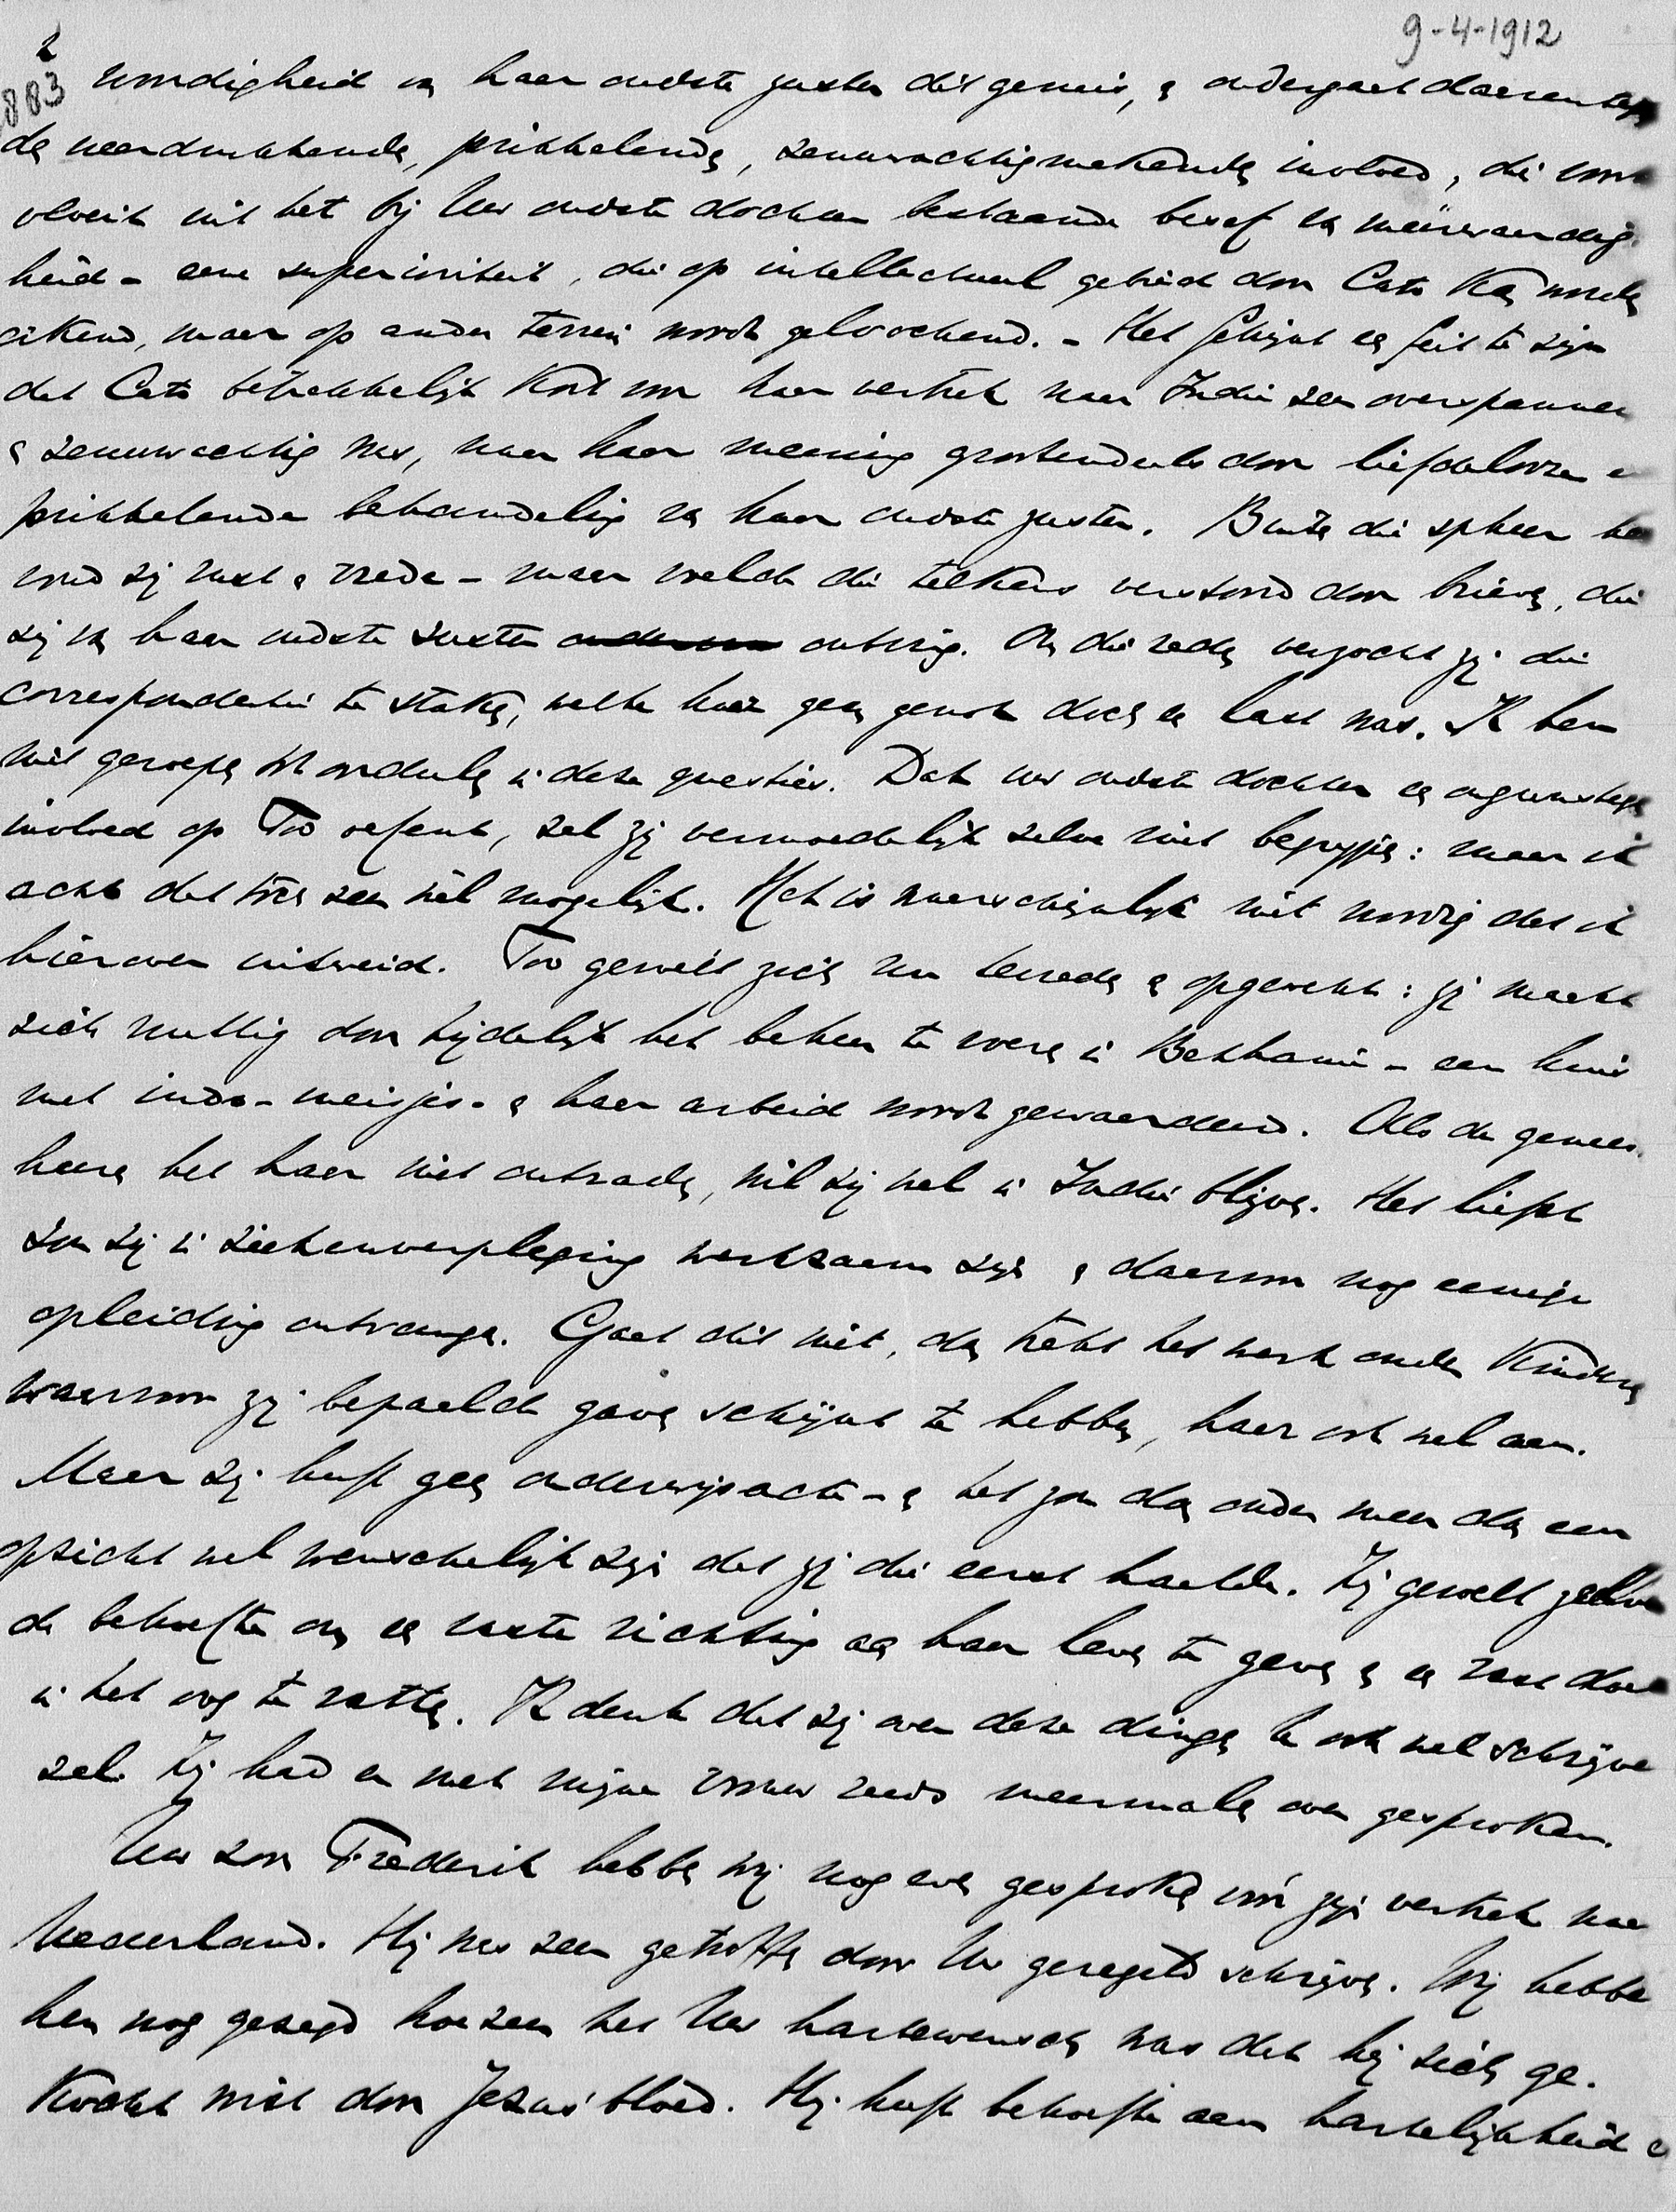 9-4-1912
2
883
woordigheid van haar oudste zuster dit gemis, en ondergaat daarentegen
de neerdrukkende, prikkelende, zenuwachtigmakende invloed, die voort
vloeit uit het bij Uw oudste dochter bestaande besef van meerwaardig-
heid - eene superioriteit, die op intellectueel gebied door Cato kan worden
erkend, maar op ander terrein wordt geloochend. - Het schijnt een feit te zijn
dat Cato betrekkelijk kort voor haar vertrek naar Indië zeer overspannen
en zenuwachtig was, naar haar meening grootendeels door liefdelooze en
prikkelende behandeling van haar oudste zuster. Buiten die spheer he
vond zij rust en vrede - maar welke die telkens verstoord door brieven, die
zij van haar oudste zuster ontving. Om die reden verzocht zij die
correspondentie te staken, welke haar geen genot doch een last was. Ik ben
niet geroepen tot oordeelen in deze questies. Dat uw oudste dochter een ongunstigen
invloed op Too oefent, zal zij vermoedelijk zelve niet begrijpen: maar ik
acht dat toch zeer wel mogelijk. Het is waarschijnlijk niet noodig dat ik
hierover uitweid. Too gevoelt zich nu tevreden en opgewekt: zij maakt
zich nuttig door tijdelijk het beheer te voeren in Bethanië - een huis
met indo-meisjes - en haar arbeid wordt gewaardeerd. Als de genees-
heeren het haar niet ontraden, wil zij wel in Indië blijven. Het liefst
zou zij in ziekenverpleging werkzaam zijn en daarvoor nog eenige
opleiding ontvangen. Gaat dit niet, dan trekt het werk onder kinderen
waarvoor zij bepaalde gaven schijnt te hebben, haar ook wel aan.
Maar zij heeft geen onderwijsacte - en het zou dan onder meer dan een
opzicht wel wenschelijk zijn dat zij die eerst haalde. Zij gevoelt zelve
de behoefte om een vaste richting aan haar leven te geven en een vast doel
in het oog te vatten. Ik denk dat zij over deze dingen U ook wel schrijven
zal. Zij had er met mijne vrouw reeds meermalen over gesproken.
Uw zoon Frederik hebben wij nog even gesproken vóór zijn vertrek naar
Nederland. Hij was zeer getroffen door Uw geregeld schrijven. Wij hebben
hem nog gezegd hoezeer het Uw hartewensch was dat hij zich ge-
kocht wist door Jezus' bloed. Hij heeft behoefte aan hartelijkheid e